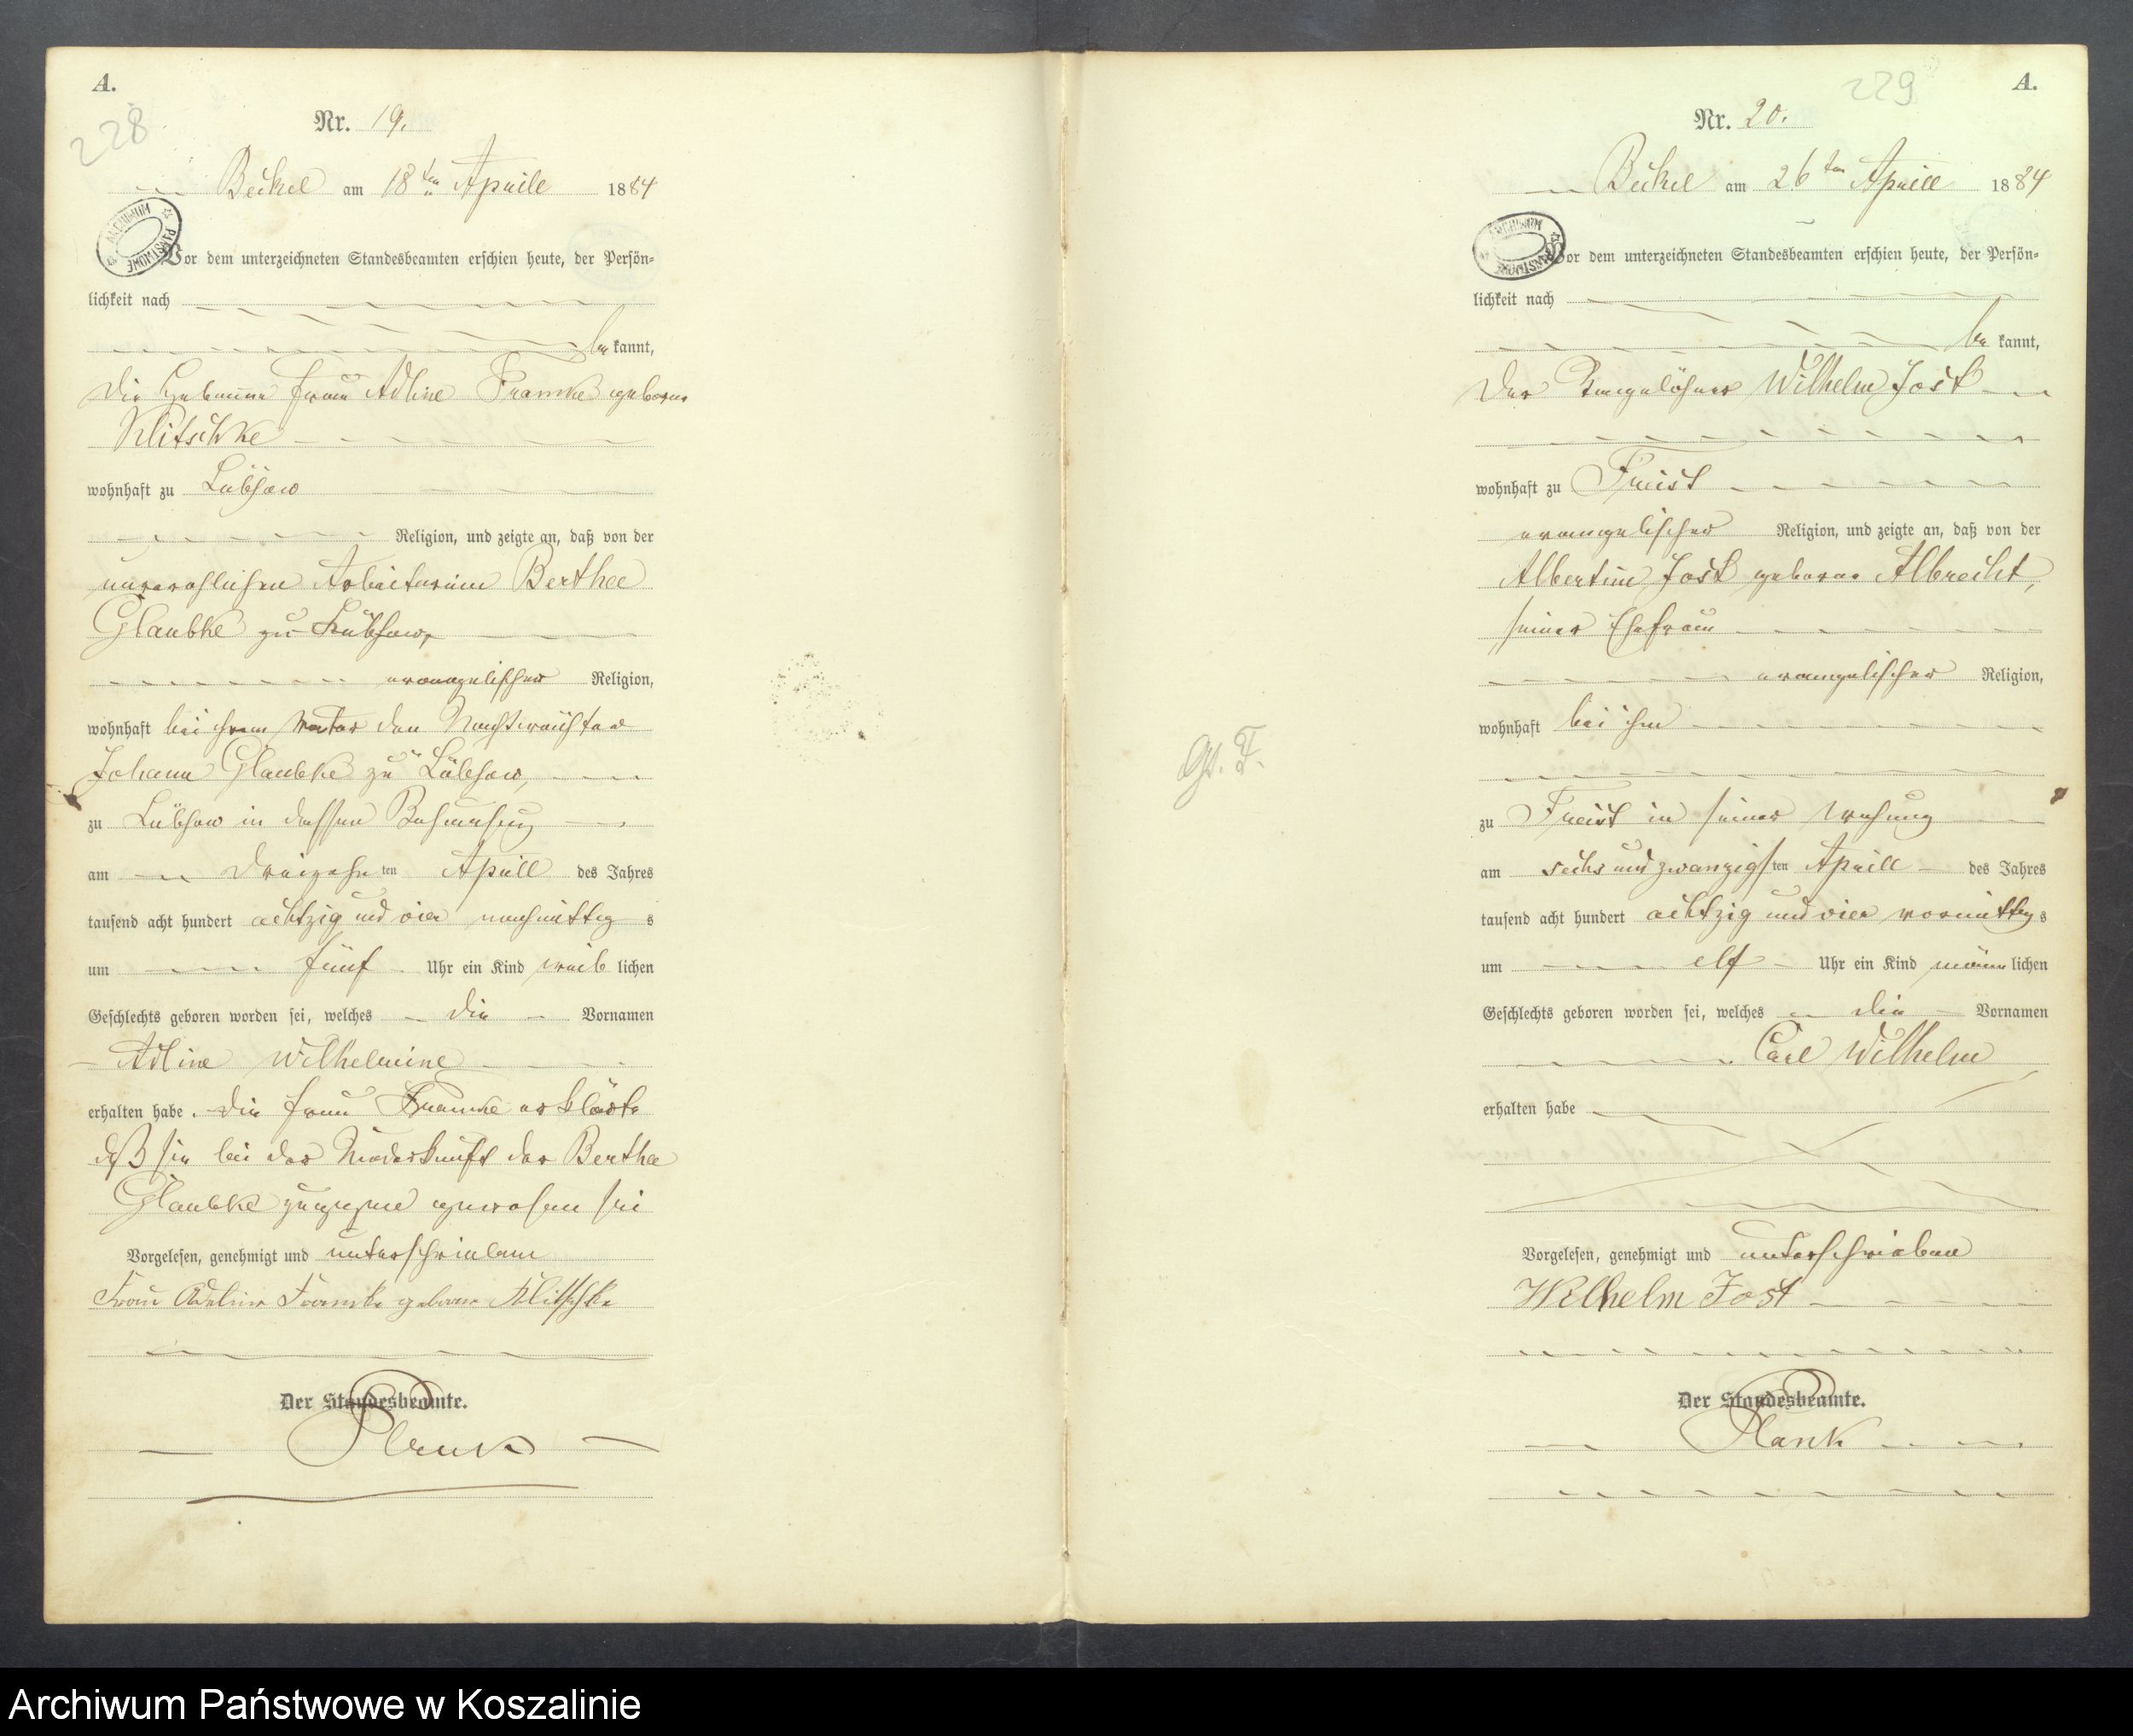 A.
228
Nr. 19.
Beckel am 18ten Aprile 1884
ARCHIWUM PAŃSTWOWE
Vor dem unterzeichneten Standesbeamten erschien heute, der Persön-
lichkeit nach
be kannt,
die Hebamme Frau Adline Franke geborne
Klitschke
wohnhaft zu Lübsow
Religion, und zeigte an, daß von der
unverehlichen Arbeiterinn Berthee
Glaubke zu Lübsow,
evangelischer Religion,
wohnhaft bei ihrem Vater den Nachtwächter
Johann Glaubke zu Lübsow,
zu Lübsow in dessen Behausung
am dreizehnten Aprill des Jahres
tausend acht hundert achtzig und vier nachmittags
um fünf Uhr ein Kind weiblichen
Geschlechts geboren worden sei, welches die Vornamen
Adline Wilhelmine
erhalten habe. die Frau Franke erklärte
daß sie bei der Niederkunft der Berthe
Glaubke zugegen gewesen sei
Vorgelesen, genehmigt und unterschrieben
Frau Adeline Franke geborne Klitschke
Der Standesbeamte.
Plank
A.
229
Nr. 20.
Beckel am 26ten Aprill 1884
ARCHIWUM PAŃSTWOWE
Vor dem unterzeichneten Standesbeamten erschien heute, der Persön-
lichkeit nach
be kannt,
der Tagelöhner Wilhelm Jost
wohnhaft zu Freist
evangelischer Religion, und zeigte an, daß von der
Albertine Jost geborne Albrecht,
seiner Ehefrau
evangelischer Religion,
wohnhaft bei ihm
Gs. F.
zu Freist in seiner Wohnung
am sechs und zwanzigsten Aprill des Jahres
tausend acht hundert achtzig und vier vormittags
um elf Uhr ein Kind männlichen
Geschlechts geboren worden sei, welches die Vornamen
Carl Wilhelm
erhalten habe
Vorgelesen, genehmigt und unterschrieben
Wilhelm Jost
Der Standesbeamte.
Plank
Archiwum Państwowe w Koszalinie